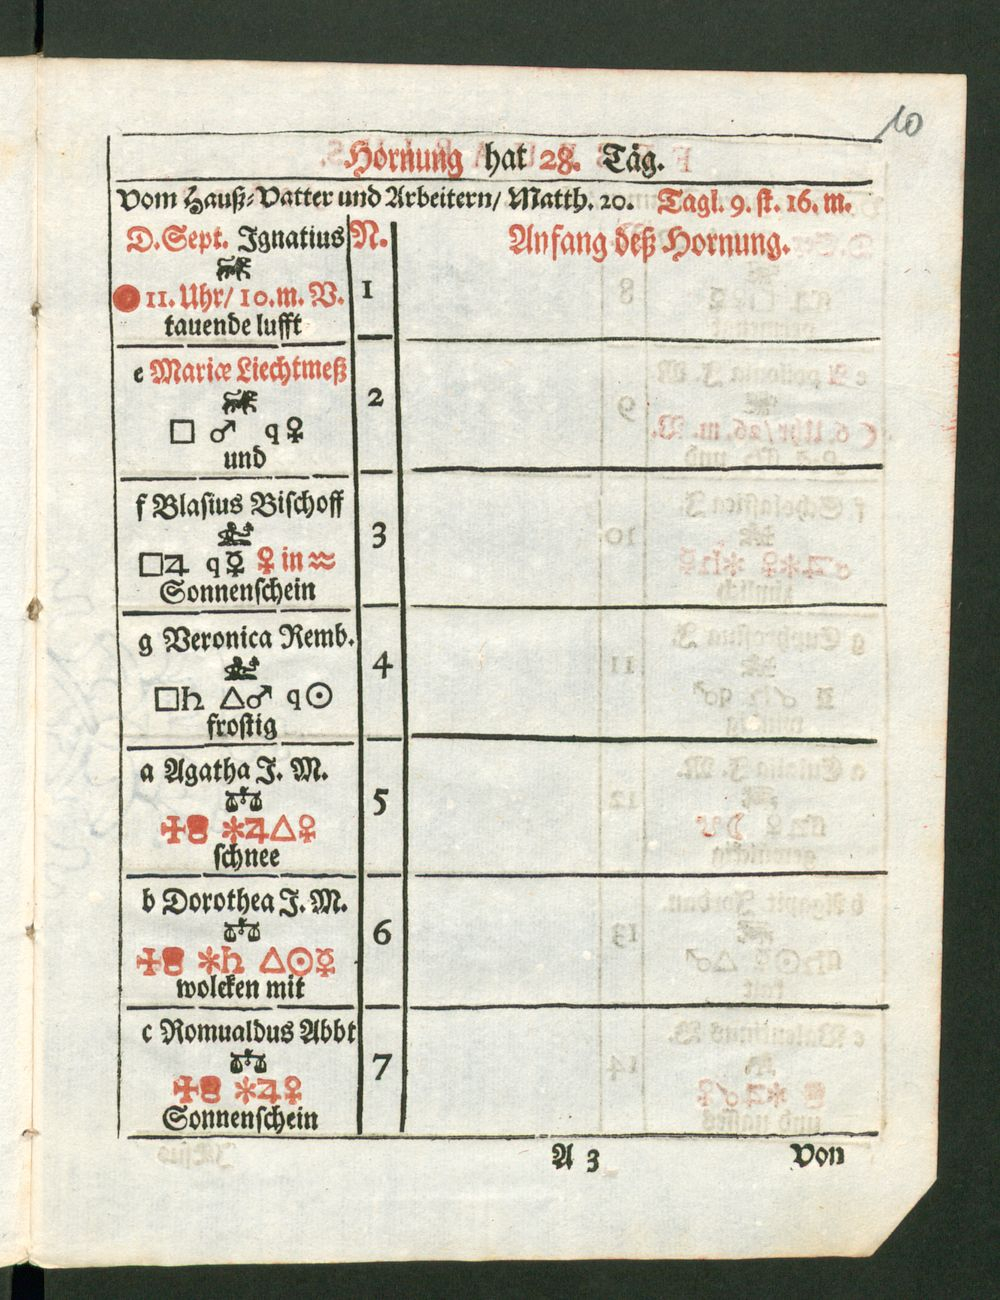 10
Hornung hat 28. Täg.
Vom Hauß-Vatter und Arbeitern/ Matth. 20. Tagl. 9. st. 16. m.
D. Sept. Ignatius N. Anfang deß Hornung.
♌
● 11. Uhr/ 10. m. V. 1
tauende lufft
e Mariæ Liechtmeß
♌ 2
□ ♂ q ♀
und
f Blasius Bischoff
♍ 3
□ ♃ q ☿ ♀ in ♒
Sonnenschein
g Veronica Remb.
♍ 4
□ ♄ △ ♂ q ☉
frostig
a Agatha J. M.
♎ 5
✠ ✻ ♃ △ ♀
schnee
b Dorothea J. M.
♎ 6
✠ ✻ ♄ △ ☉ ☿
wolcken mit
c Romualdus Abbt
♎ 7
✠ ✻ ♃ ♀
Sonnenschein
A 3 Von